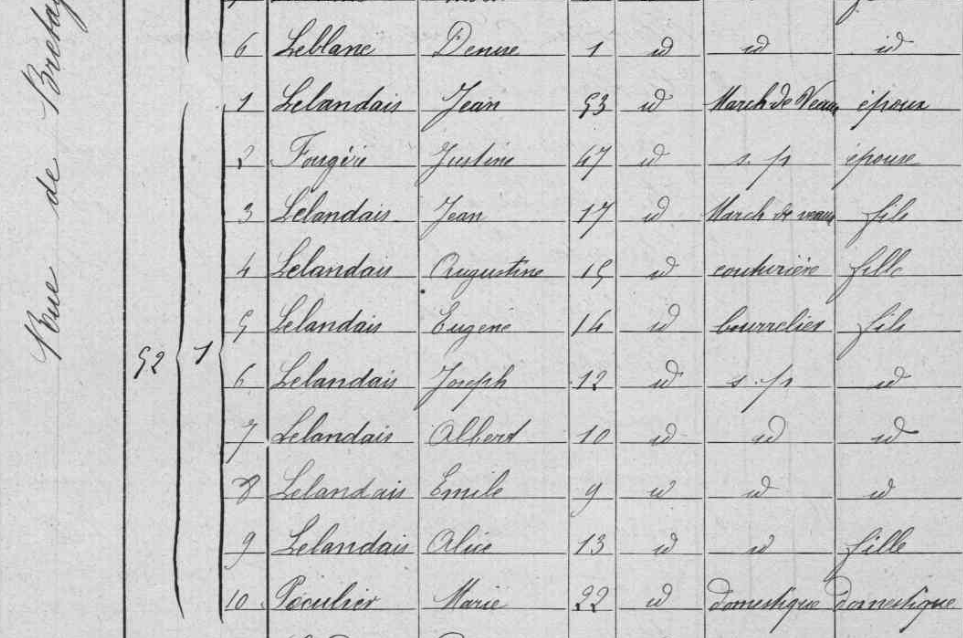 Rue de Bretag
6 Leblanc Denise 1 id id id
1 Lelandais Jean 53 id March de Veaux époux
2 Fougère Justine 47 id s. p épouse
3 Lelandais Jean 17 id March de veaux fils
4 Lelandais Augustine 15 id couturière fille
5 Lelandais Eugène 14 id bourrelier fils
52 1
6 Lelandais Joseph 12 id s. p id
7 Lelandais Albert 10 id id id
8 Lelandais Emile 9 id id id
9 Lelandais Alice 13 id id fille
10 Marie 22 id domestique domestique